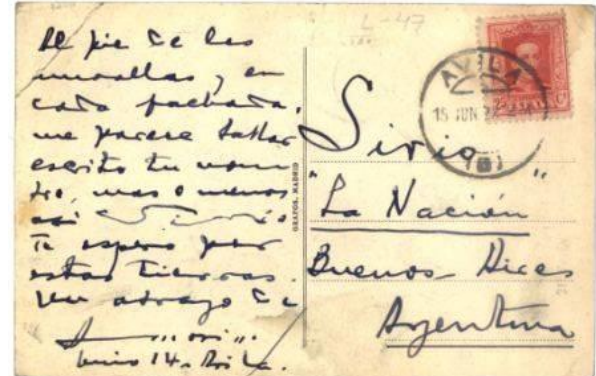 L-47
Al pie de las
murallas y en
cada fachada,
me parece hallar
escrito tu nom
bre, mas o menos
asi Sirio
Te espero por
estas tierras.
Un abrazo de
Junio 14 - Avila.
GRAFOS. MADRID
AVILA
15 JUN
Sirio
"La Nación"
Buenos-Aires
Argentina